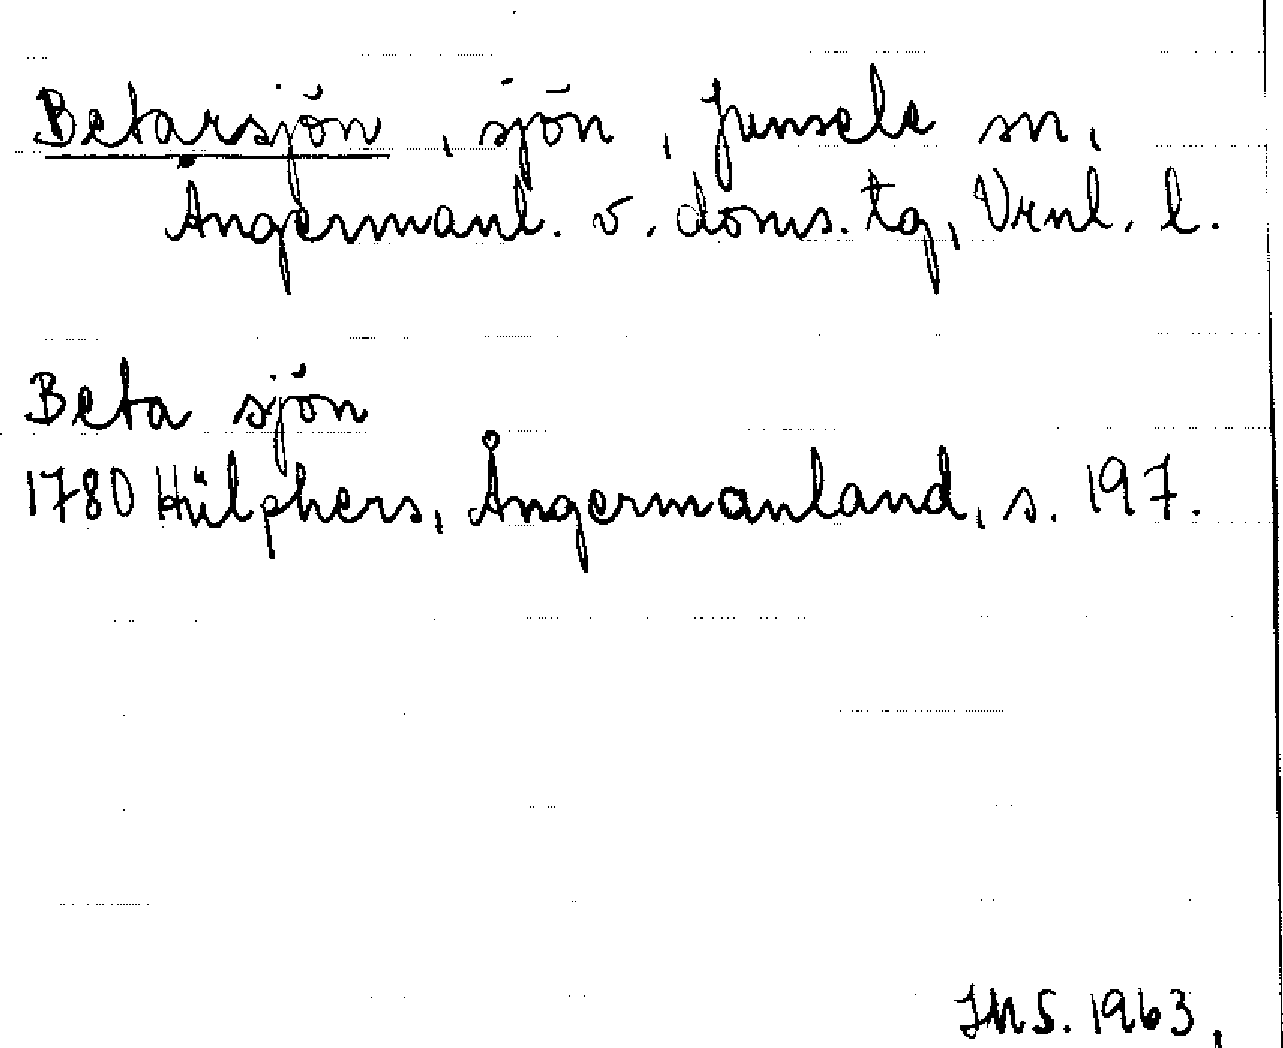 Betarsjön, sjön, Junsele sn,
Ångermanl. v. doms. tg, Vrnl. l.
Beta sjön
1780 Hülphers, Ångermanland, s. 197.
IHS. 1963.